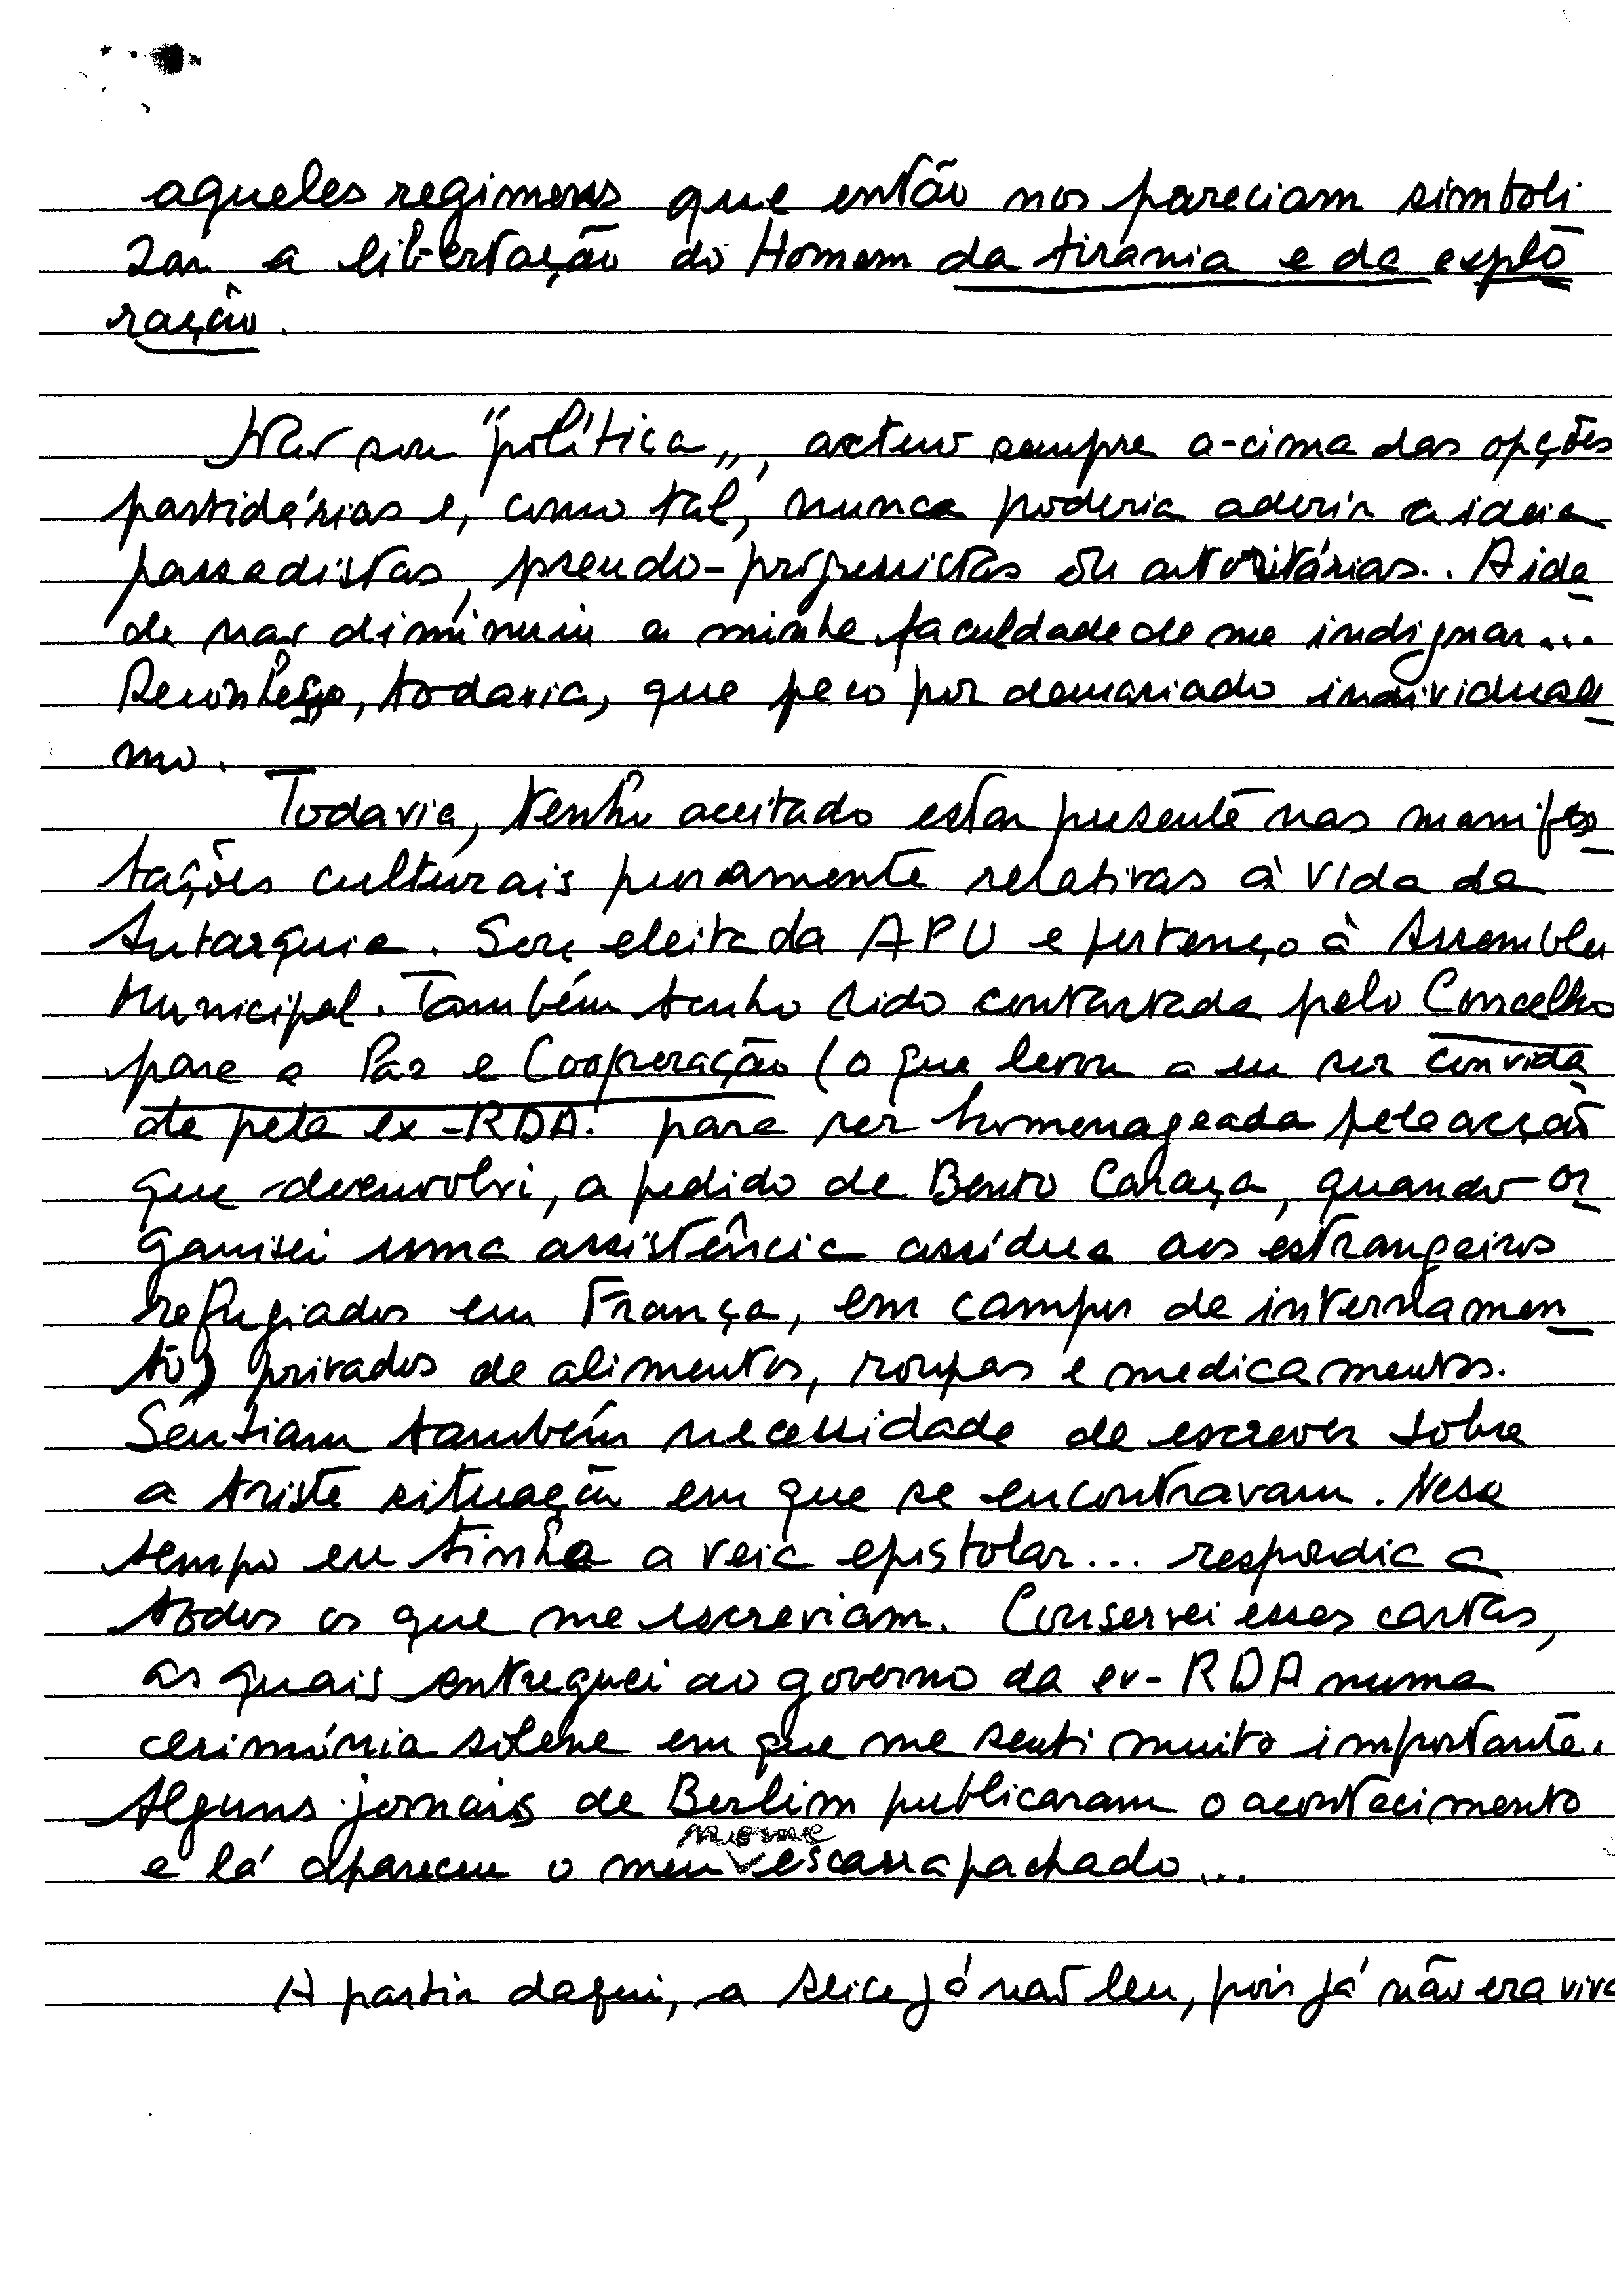 aqueles regimens que então nos pareciam simboli
zar a libertação do Homem da tirania e da explo
ração.
Não sou "política„, actuo sempre a-cima das opções
partidárias e, como tal, nunca poderia aderir a ideia
passadistas, pseudo-progressistas ou autoritárias.. A ida
de não diminuiu a minha faculdade de me indignar...
Reconheço, todavia, que peco por demasiado individualis
mo.
Todavia, tenho aceitado estar presente nas manifes
tações culturais puramente relativas à vida da
Autarquia. Sou eleita da APU e pertenço à Assemblei
Municipal. Também tenho sido contactada pelo Concelho
para a Paz e Cooperação (o que levou a eu ser convida
da pela ex-RDA. para ser homenageada pela acção
que desenvolvi, a pedido de Bento Caraça, quando or
ganisei uma assistência assídua aos estrangeiros
refugiados em França, em campos de internamen
to) privados de alimentos, roupas e medicamentos.
Sentiam também necessidade de escrever sobre
a triste situação em que se encontravam. Nesse
tempo eu tinha a veia epistolar... respondia a
todos os que me escreviam. Conservei essas cartas,
as quais entreguei ao governo da ex-RDA numa
cerimónia solene em que me senti muito importante.
Alguns jornais de Berlim publicaram o acontecimento
e lá apareceu o meu nome escarrapachado...
A partir daqui, a Alice já não leu, pois já não era viva